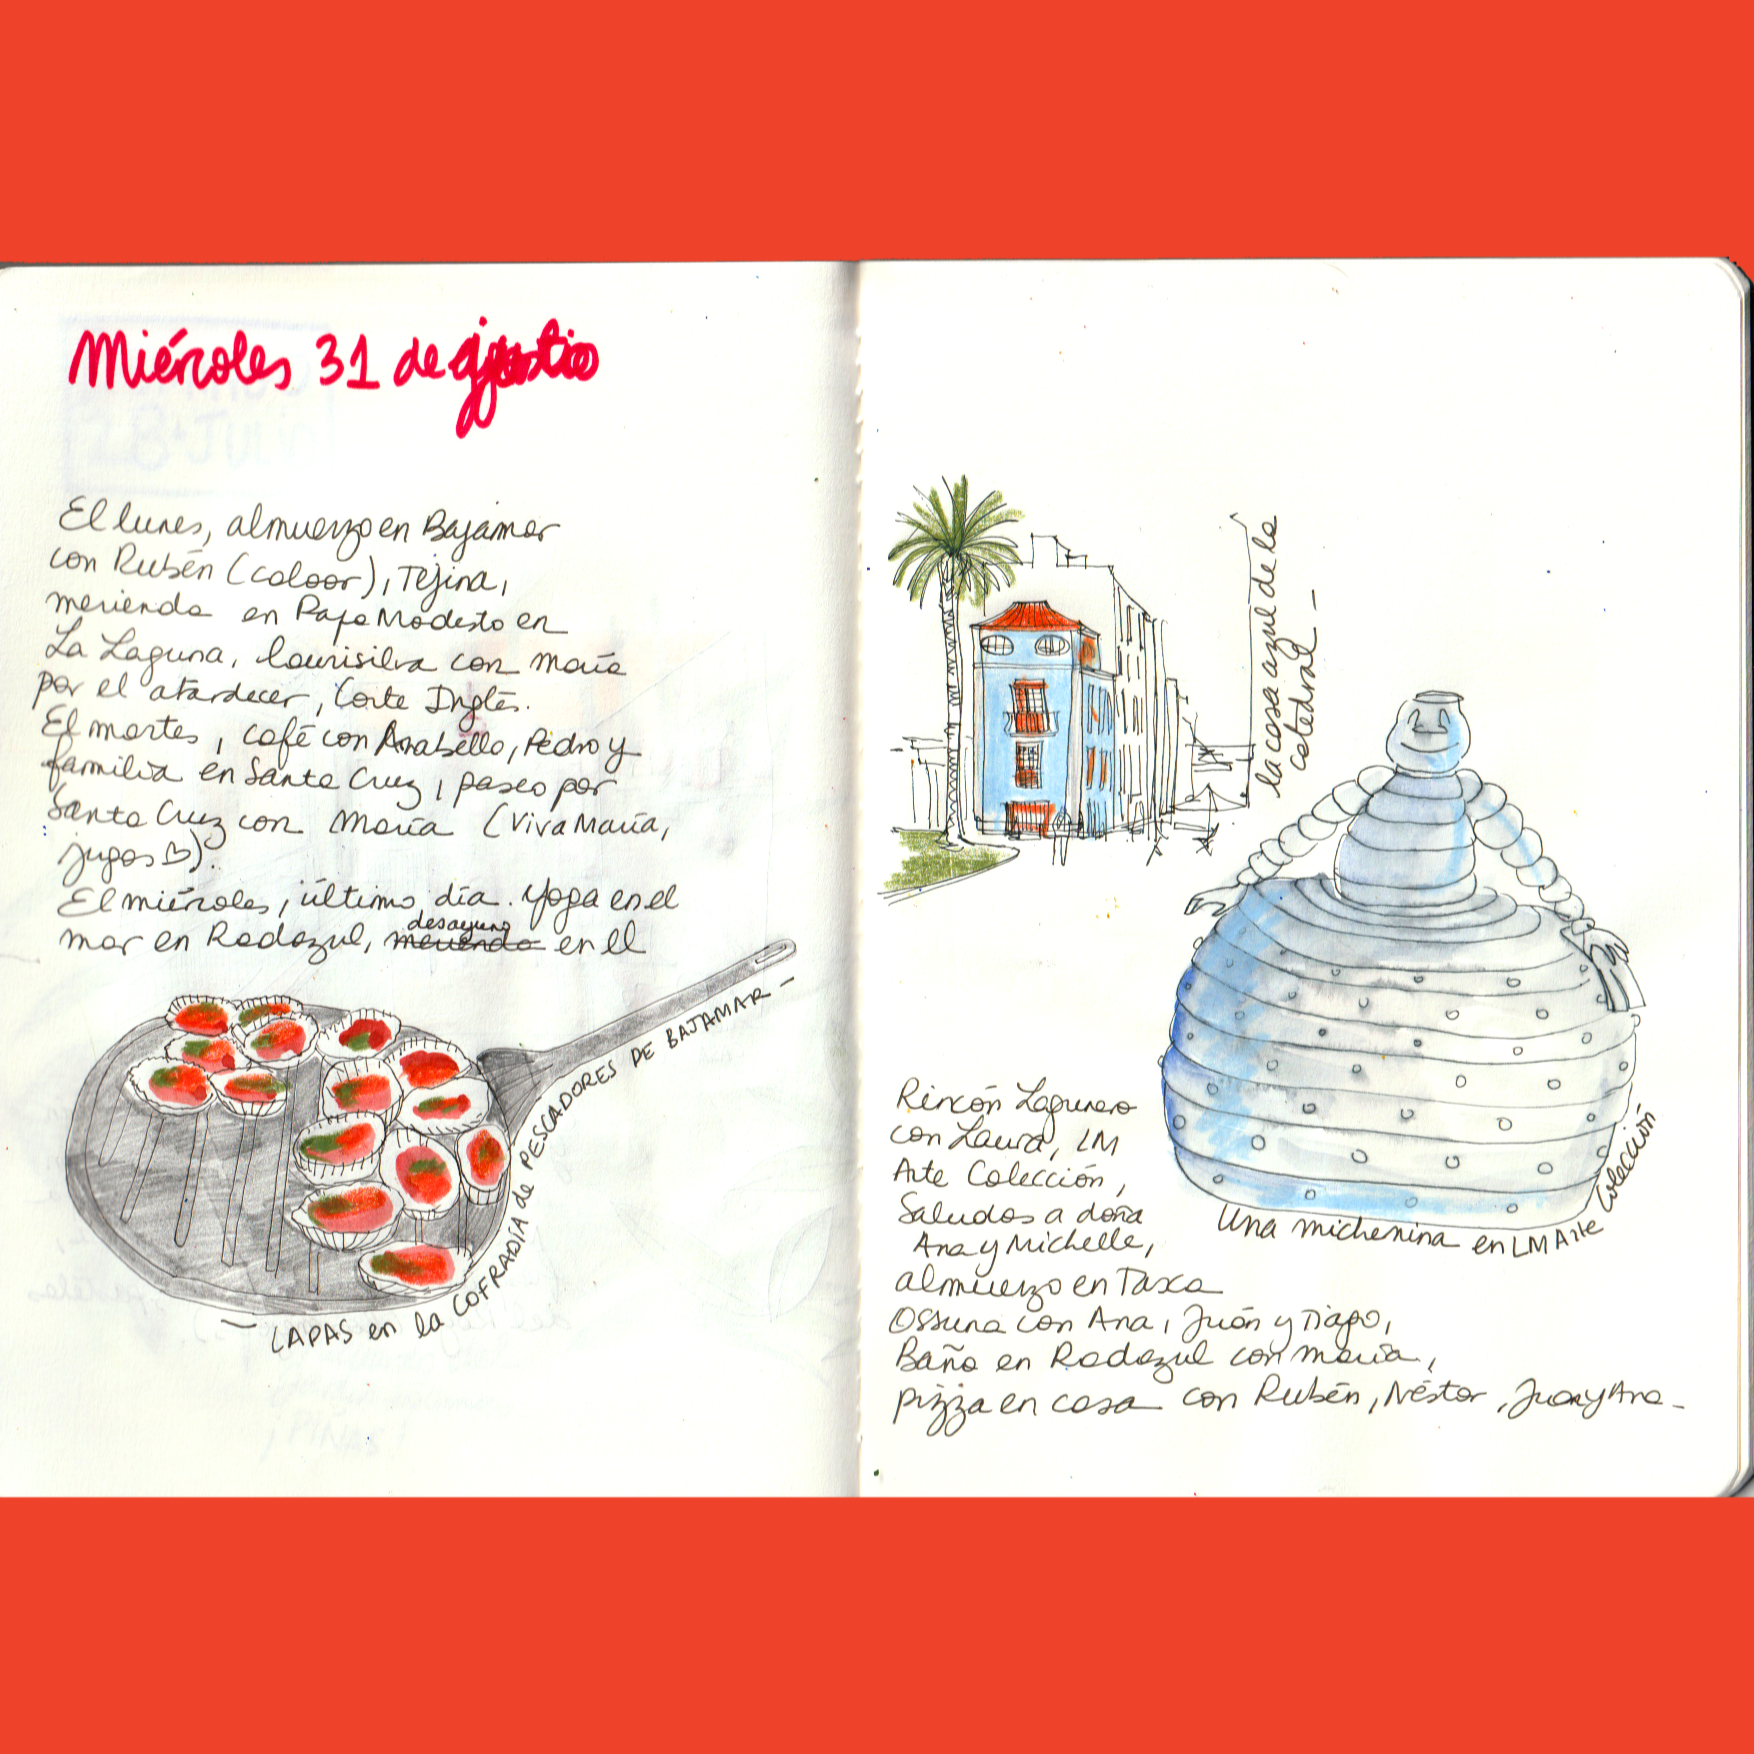 Miércoles 31 de agosto
El lunes, almuerzo en Bajamar
con Rubén (caloor), Tejina,
merienda en Papa Modesto en
La Laguna, laurisilva con María
por el atardecer, Corte Inglés.
El martes, café con Anabello, Pedro y
familia en Santa Cruz, paseo por
Santa Cruz con María (Viva María,
jugos ♡).
El miércoles, último día. Yoga en el
desayuno
mar en Radazul, merienda en el
LAPAS en la COFRADÍA de PESCADORES DE BAJAMAR -
la casa azul de la
catedral -
Una michenina en LM Arte Colección
Rincón Lagunero
con Laura, LM
Arte Colección,
Saludos a doña
Ana y Michelle,
almuerzo en Tasca
Ossuna con Ana, Juan y Tiago,
Baño en Radazul con María,
pizza en casa con Rubén, Néstor, Juan y Ana -